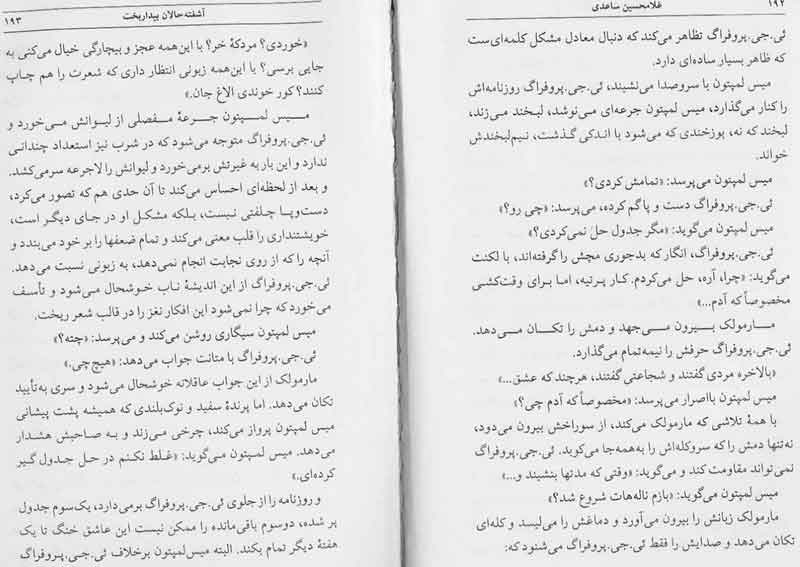 ۱۹۲
غلامحسین ساعدی
ئی.جی.پروفراگ تظاهر می‌کند که دنبال معادل مشکل کلمه‌ای‌ست
که ظاهر بسیار ساده‌ای دارد.
میس لمپتون با سروصدا می‌نشیند، ئی.جی.پروفراگ روزنامه‌اش
را کنار می‌گذارد، میس لمپتون جرعه‌ای می‌نوشد، لبخند می‌زند،
لبخند که نه، پوزخندی که می‌شود با اندکی گذشت، نیم‌لبخندش
خواند.
میس لمپتون می‌پرسد: «تمامش کردی؟»
ئی.جی.پروفراگ دست و پاگم کرده، می‌پرسد: «چی رو؟»
میس لمپتون می‌گوید: «مگر جدول حل نمی‌کردی؟»
ئی.جی.پروفراگ، انگار که بدجوری مچش را گرفته‌اند، با لکنت
می‌گوید: «چرا، آره، حل می‌کردم. کار پرتیه، اما برای وقت‌کشی
مخصوصاً که آدم...»
مارمولک بیرون می‌جهد و دمش را تکان می‌دهد.
ئی.جی.پروفراگ حرفش را نیمه‌تمام می‌گذارد.
«بالاخره مردی گفتند و شجاعتی گفتند، هرچند که عشق...»
میس لمپتون بااصرار می‌پرسد: «مخصوصاً که آدم چی؟»
با همهٔ تلاشی که مارمولک می‌کند، از سوراخش بیرون می‌دود،
نه‌تنها دمش را که سروکله‌اش را به‌همه‌جا می‌کوبد. ئی.جی.پروفراگ
نمی‌تواند مقاومت کند و می‌گوید: «وقتی که مدتها بنشیند و...»
میس لمپتون می‌گوید: «بازم ناله‌هات شروع شد؟»
مارمولک زبانش را بیرون می‌آورد و دماغش را می‌لیسد و کله‌ای
تکان می‌دهد و صدایش را فقط ئی.جی.پروفراگ می‌شنود که:
آشفته‌حالان بیداربخت
۱۹۳
«خوردی؟ مردکهٔ خر؟ با این‌همه عجز و بیچارگی خیال می‌کنی به
جایی برسی؟ با این‌همه زبونی انتظار داری که شعرت را هم چاپ
کنند؟ کور خوندی الاغ جان.»
میس لمپتون جرعهٔ مفصلی از لیوانش می‌خورد و
ئی.جی.پروفراگ متوجه می‌شود که در شرب نیز استعداد چندانی
ندارد و این بار به غیرتش برمی‌خورد و لیوانش را لاجرعه سرمی‌کشد.
و بعد از لحظه‌ای احساس می‌کند تا آن حدی هم که تصور می‌کرد،
دست‌وپا چلفتی نیست، بلکه مشکل او در جای دیگر است،
خویشتنداری را قلب معنی می‌کند و تمام ضعفها را بر خود می‌بندد و
آنچه را که از روی نجابت انجام نمی‌دهد، به زبونی نسبت می‌دهد.
ئی.جی.پروفراگ از این اندیشهٔ ناب خوشحال می‌شود و تأسف
می‌خورد که چرا نمی‌شود این افکار نغز را در قالب شعر ریخت.
میس لمپتون سیگاری روشن می‌کند و می‌پرسد: «چته؟»
ئی.جی.پروفراگ با متانت جواب می‌دهد: «هیچ‌چی.»
مارمولک از این جواب عاقلانه خوشحال می‌شود و سری به‌تأیید
تکان می‌دهد. اما پرندهٔ سفید و نوک‌بلندی که همیشه پشت پیشانی
میس لمپتون پرواز می‌کند، چرخی می‌زند و به صاحبش هشدار
می‌دهد. میس لمپتون می‌گوید: «غلط نکنم در حل جدول گیر
کرده‌ای.»
و روزنامه را از جلوی ئی.جی.پروفراگ برمی‌دارد، یک‌سوم جدول
پر شده، دوسوم باقی‌مانده را ممکن نیست این عاشق خنگ تا یک
هفتهٔ دیگر تمام بکند. البته میس‌لمپتون برخلاف ئی.جی.پروفراگ